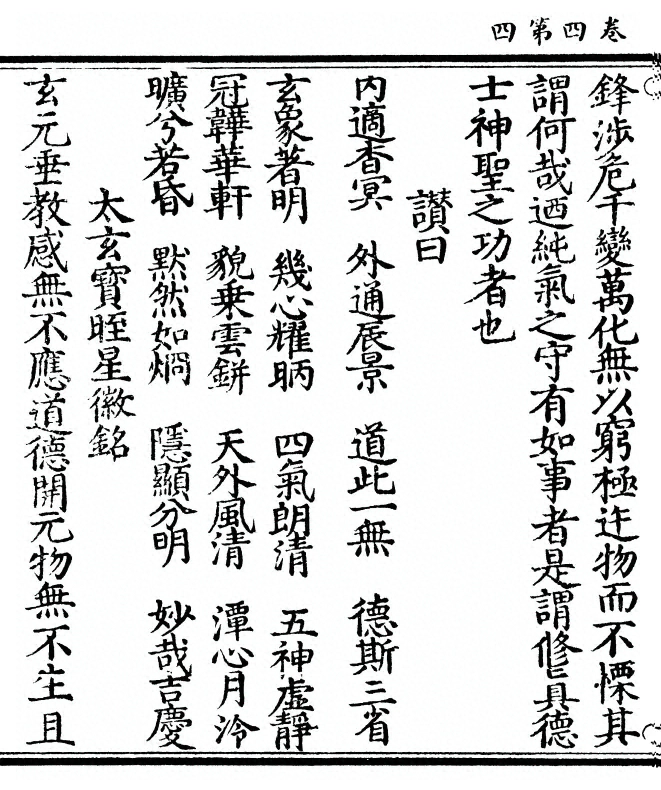 卷四第四
鋒涉危千變萬化無以窮極迕物而不慄其
謂何哉迺純氣之守有如事者是謂修真德
士神聖之功者也
讃曰
内適杳冥 外通展景 道此一無 德斯三省
玄象著明 幾心耀昞 四氣朗清 五神虛靜
冠鞾華軒 貌乗雲鉼 天外風清 潭心月泠
曠兮若昏 默然如烱 隱顯分明 妙哉吉慶
太玄寶眰星徽銘
玄元垂教感無不應道德開元物無不生且